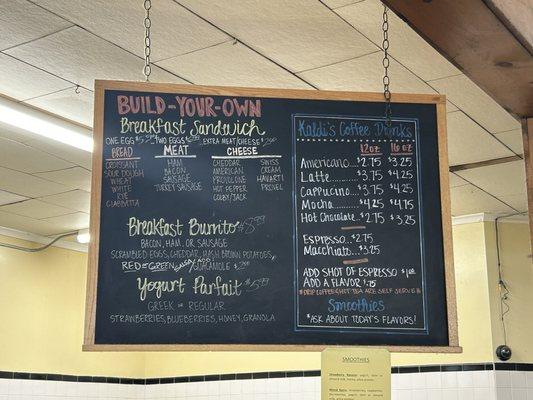 BUILD-YOUR-OWN
Breakfast Sandwich
ONE EGG TWO EGGS EXTRA MEAT/CHEESE
BREAD MEAT CHEESE
CROISSANT HAM CHEDDAR SWISS
SOUR DOUGH BACON AMERICAN CREAM
WHEAT SAUSAGE PROVOLONE HAVARTI
WHITE TURKEY SAUSAGE HOT PEPPER PROVEL
RYE COLBY/JACK
CIABATTA
Breakfast Burrito $8.99
BACON, HAM, OR SAUSAGE
SCRAMBLED EGGS, CHEDDAR, HASH BROWN POTATOES,
RED OR GREEN GUACAMOLE
Yogurt Parfait $5.99
GREEK OR REGULAR
STRAWBERRIES, BLUEBERRIES, HONEY, GRANOLA
Kaldi's Coffee Drinks
12oz 16oz
Americano $2.75 $3.25
Latte $3.75 $4.25
Cappuccino $3.75 $4.25
Mocha $4.25 $4.75
Hot Chocolate $2.75 $3.25
Espresso $2.75
Macchiato $3.25
ADD SHOT OF ESPRESSO
ADD A FLAVOR $.75
*DRIP COFFEE & HOT TEA ARE SELF SERVE*
Smoothies
*ASK ABOUT TODAY'S FLAVORS!
SMOOTHIES